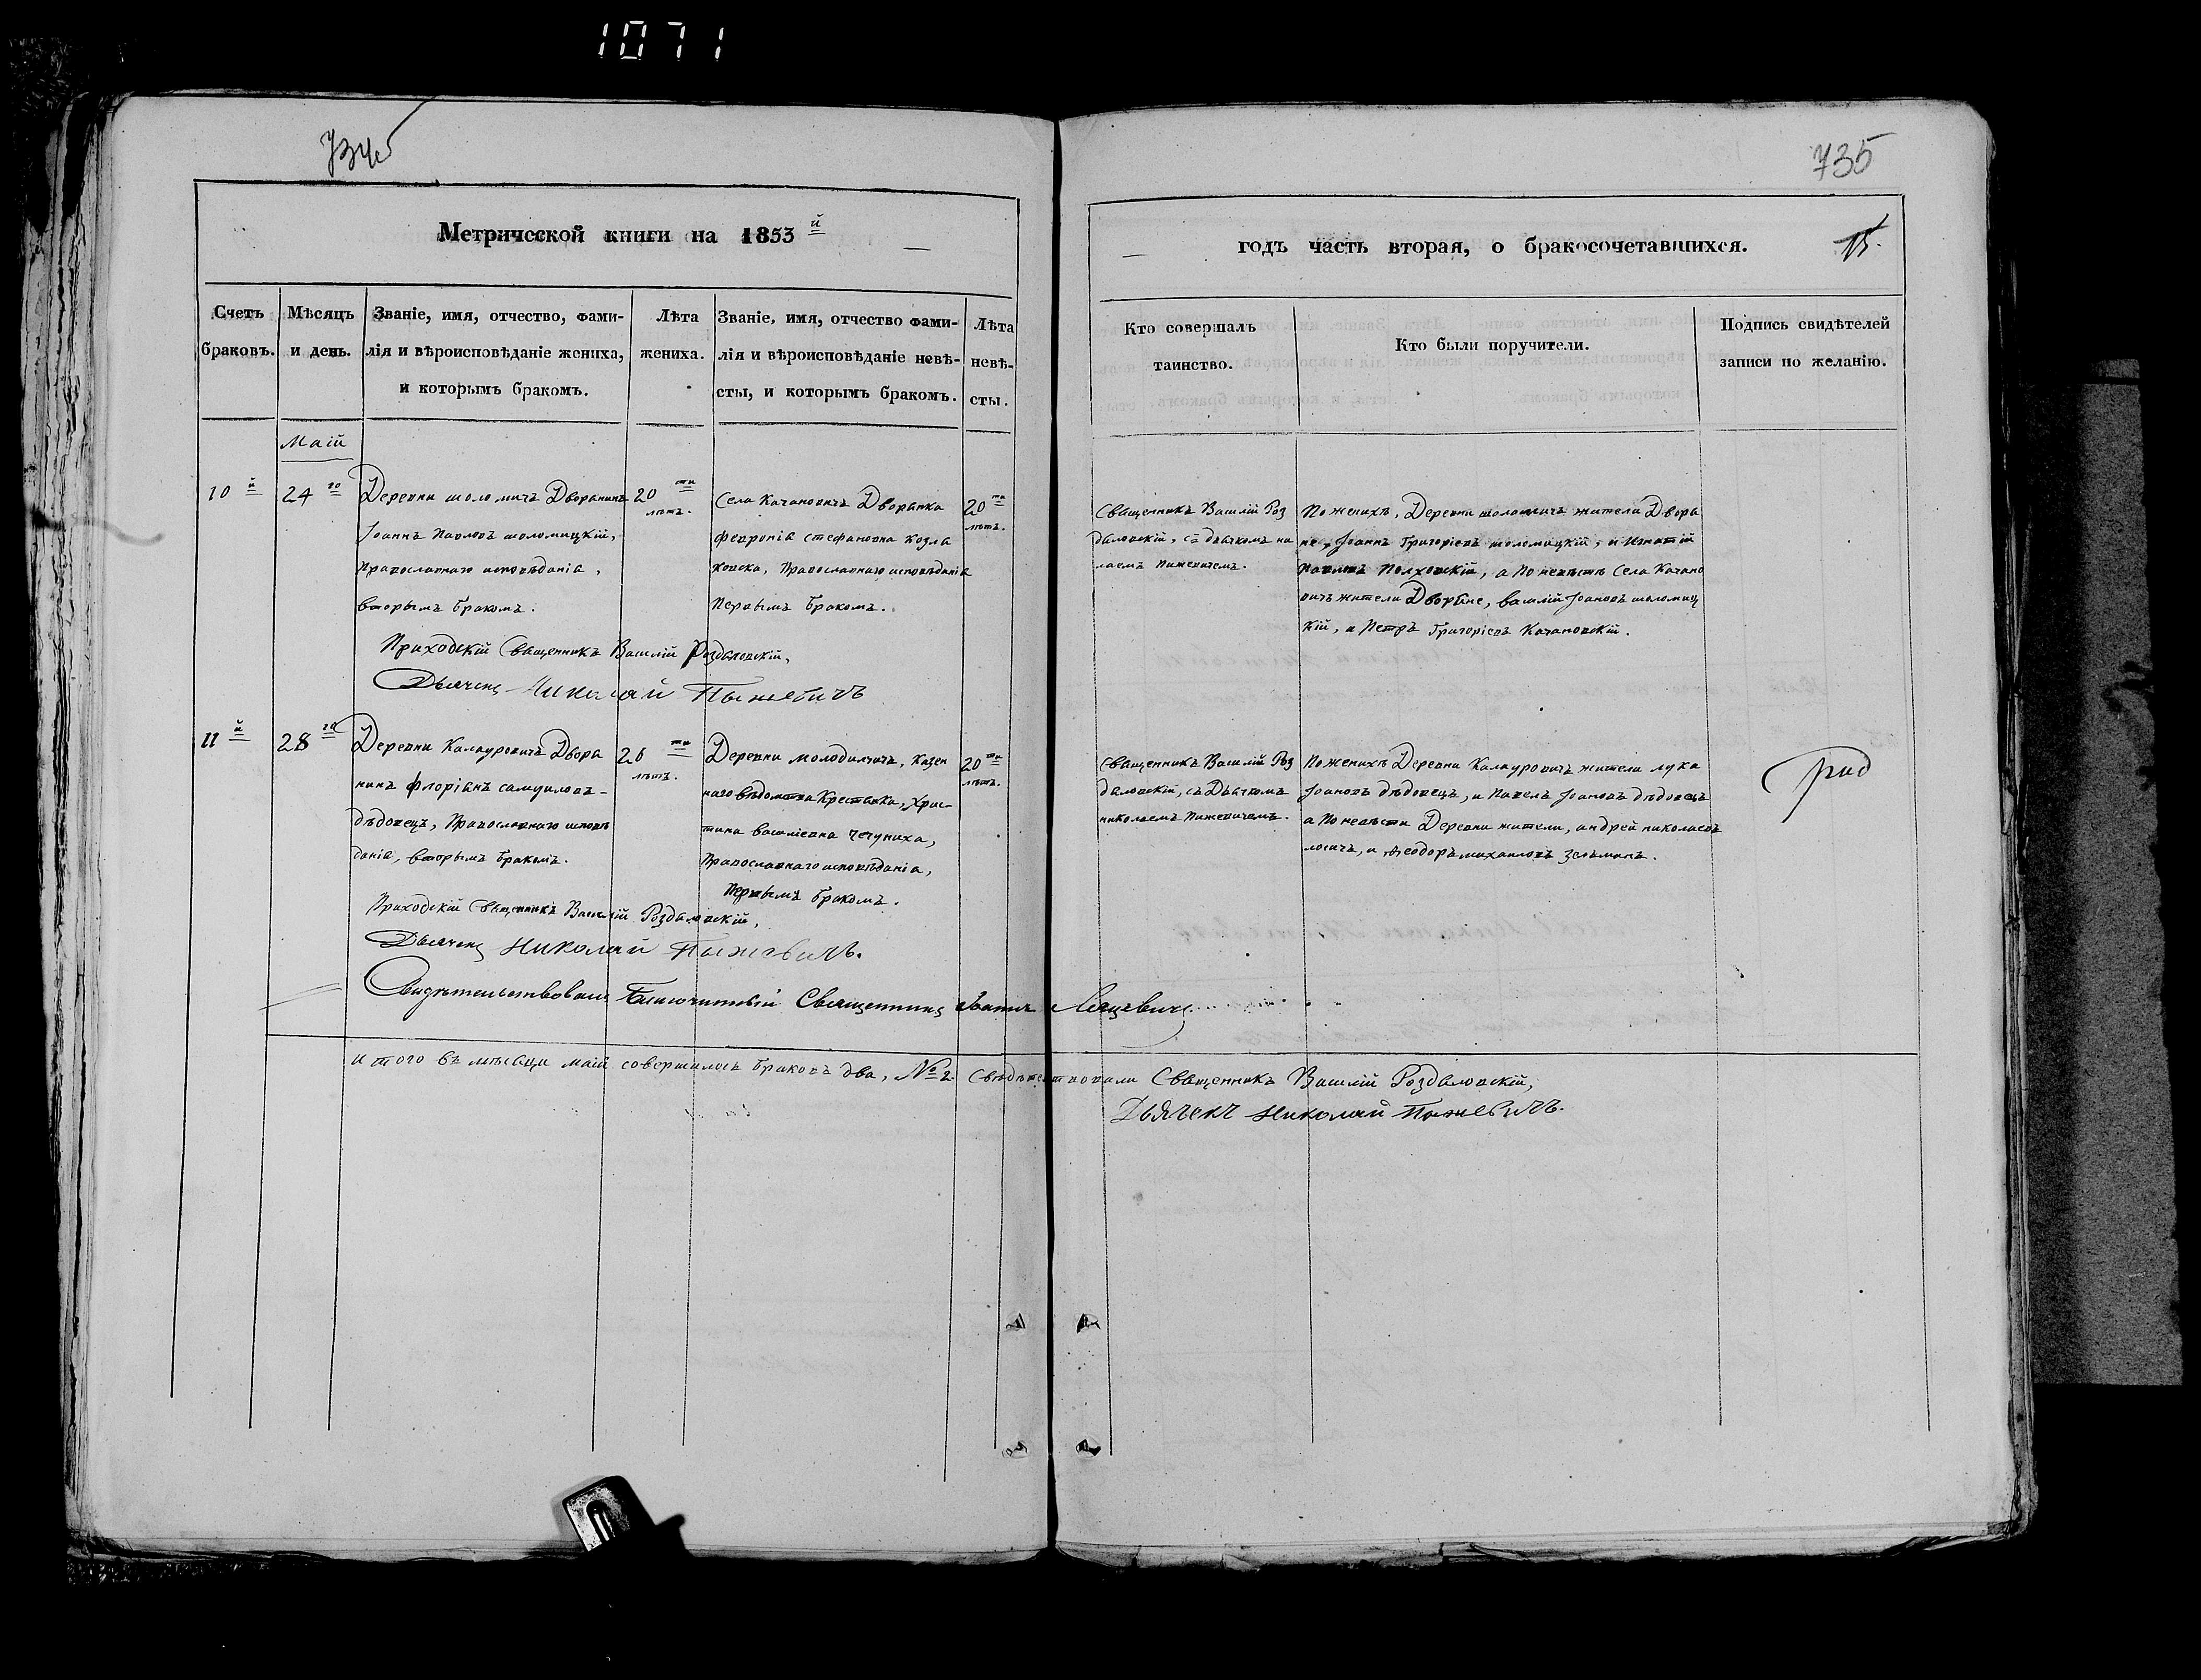 1071
734об
735
Метрической книги на 1853й
годъ часть вторая, о бракосочетавшихся.
15.
Счетъ браковъ.
Мѣсяцъ и день.
Званіе, имя, отчество, фами-
лія и вѣроисповѣданіе жениха,
и которымъ бракомъ.
Лѣта
жениха.
Званіе, имя, отчество фами-
лія и вѣроисповѣданіе невѣ-
сты, и которымъ бракомъ.
Лѣта
невѣ-
сты.
Кто совершалъ
таинство.
Кто были поручители.
Подпись свидѣтелей
записи по желанію.
Маій
10й
24го
Деревни шоломичъ Дворянинъ
Іоаннъ Павловъ шоломицкій,
Православнаго исповѣданія,
вторымъ бракомъ.
20ти
лѣтъ.
Села Качановичъ Дворянка
феѵронія стефановна козля
ковска, Православнаго исповѣданія
Первымъ бракомъ.
20ти
лѣтъ.
Священникъ Василій Роз
даловскій, съ дьячкомъ ни
лаемъ Пыжевичемъ.
По женихѣ, Деревни шоломичъ жители Дворя
не, Іоаннъ Григоріевъ шоломицкій, и Игнатій
Павловъ Полховскій, а По невѣстѣ Села Качано
вичъ жители Дворяне, василій Іоановъ шоломиц
кій, и Петръ Григоріевъ Качановскій.
Приходскій Священникъ Василій Роздаловскій,
Дьячекъ Николай Пыжевичъ
11й
28го
Деревни Калауровичъ Дворя
нинъ флоріанъ самуиловъ-
дѣдовецъ, Православнаго исповѣ
данія, вторымъ бракомъ.
26ти
лѣтъ.
Деревни молодильчичъ, казен
наго вѣдомства Крестьянка, Хрис-
тина василіевна
Православнаго исповѣданія,
Первымъ бракомъ.
20ти
лѣтъ.
Священникъ Василій Роз
даловскій, съ Дьячкомъ
николаемъ Пыжевичемъ.
По женихѣ Деревни Калауровичъ жители лука
Іоановъ дѣдовецъ, и Павелъ Іоановъ дѣдовецъ
а По невѣсти Деревни жители, андрей николаевъ
и Ѳеодоръ михаиловъ
Приходскій Священникъ Василій Роздаловскій,
Дьячекъ Николай Пыжевичъ.
Свидѣтельствовалъ Благочинный Священникъ Іоаннъ
Итого въ мѣсяцѣ маіи совершилось браковъ два, № 2. Свѣдѣтелствовали Священникъ Василій Роздаловскій,
Дьячекъ Николай Пыжевичъ.